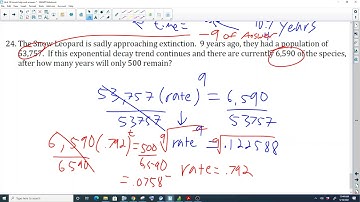 time = 10.7 years
-9 of Answer
24. The Snow Leopard is sadly approaching extinction. 9 years ago, they had a population of
53,757. If this exponential decay trend continues and there are currently 6,590 of the species,
after how many years will only 500 remain?
53,757 (rate)^9 = 6,590
53757 53757
6,590 (.792)^t = 500 9√rate^9 = 9√.122588
6590 6590
= .0758 rate = .792